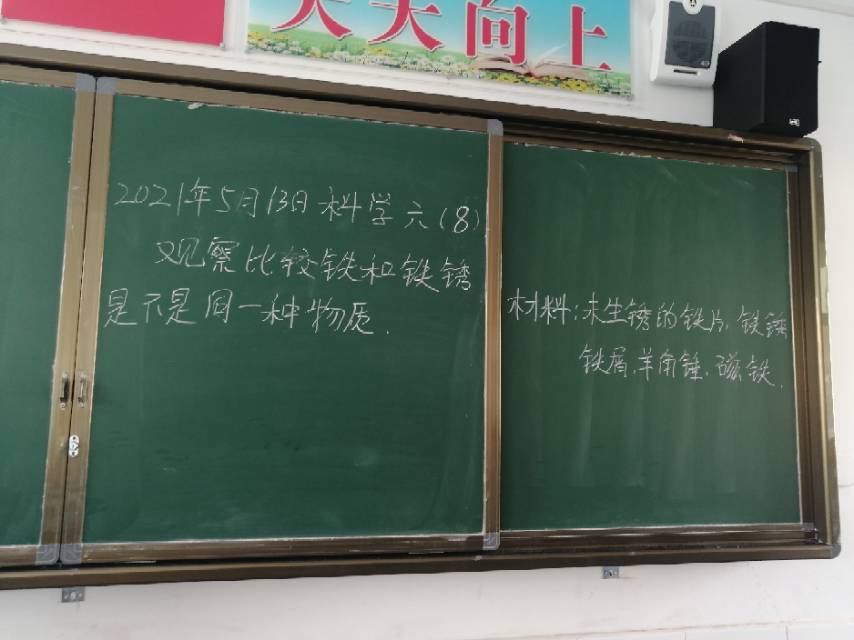 天天向上
2021年5月13日 科学 六(8)
观察比较铁和铁锈
是不是同一种物质.
材料:未生锈的铁片.铁锤
铁屑.羊角锤.磁铁.